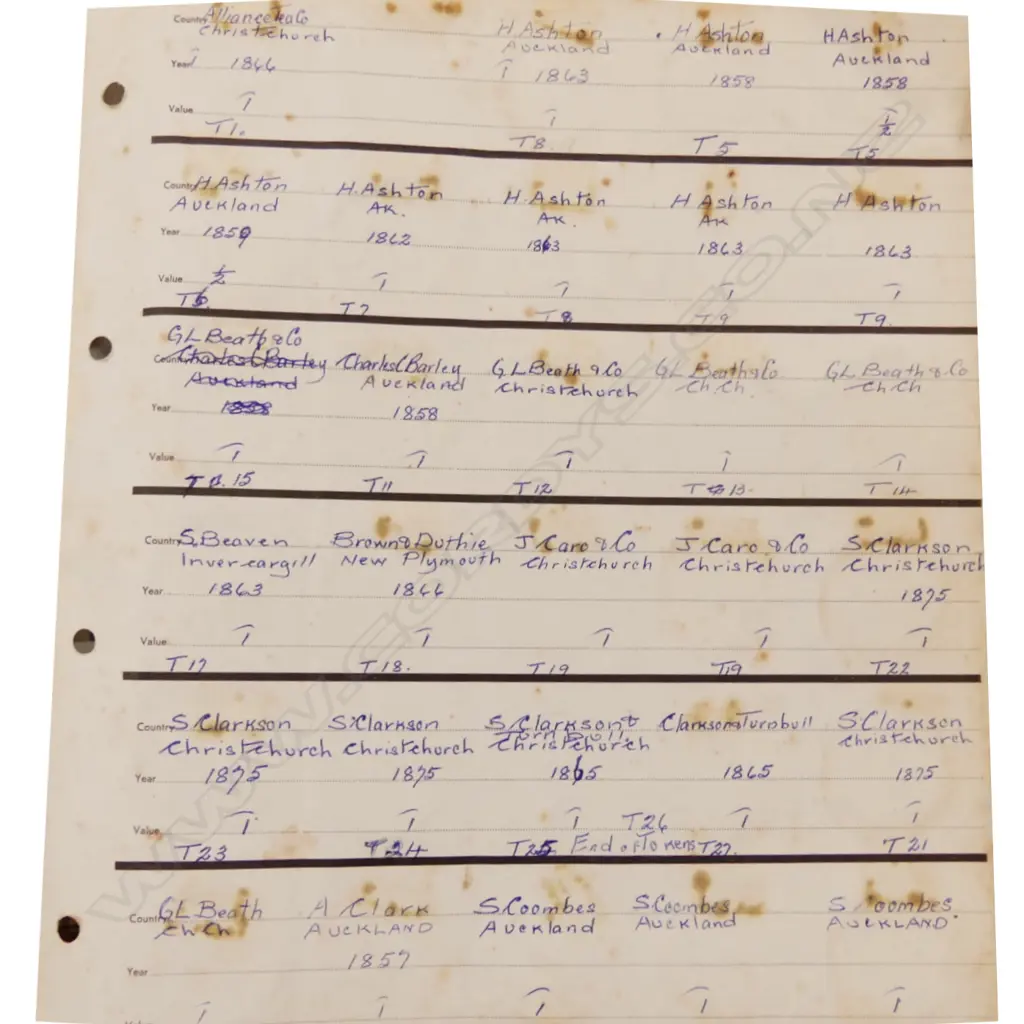 Country Alliance Tea Co
Christchurch
H Ashton
Auckland
H Ashton
Auckland
H Ashton
Auckland
Year 1866
1863
1858
1858
Value T
T
1/2
T1. T8. T5 T5
Country H Ashton H. Ashton H. Ashton H Ashton H Ashton
Auckland AK. AK. AK
Year 1859 1862 1863 1863 1863
Value 1/2 T T T T
T7 T8 T9 T9.
GL Beath & Co
Country Charles C Barley Charles C Barley GL Beath & Co GL Beath & Co GL Beath & Co
Auckland Auckland Christchurch Ch.Ch Ch.Ch
Year 1858 1858
Value T T T T T
15 T11 T12 T 13. T14
Country S. Beaven Brown & Duthie J Caro & Co J Caro & Co S. Clarkson
Invercargill New Plymouth Christchurch Christchurch Christchurch
Year 1863 1866 1875
Value T T T T T
T17 T18. T19 T19 T22
Country S Clarkson S Clarkson S Clarkson & Clarkson & Turnbull S Clarkson
Turnbull
Christchurch Christchurch Christchurch Christchurch
Year 1875 1875 1865 1865 1875
Value T T T T26 T T
T23 T24 T25 End of Tokens T27. T21
Country GL Beath A Clark S. Coombes S. Coombes S. Coombes.
Ch Ch AUCKLAND Auckland Auckland AUCKLAND
Year 1857
Value T T T T T